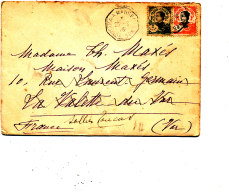 Madame Ph. Maxès
Maison Maxès
10, Rue Laurent Germain
La Valette du Var
France (Var)